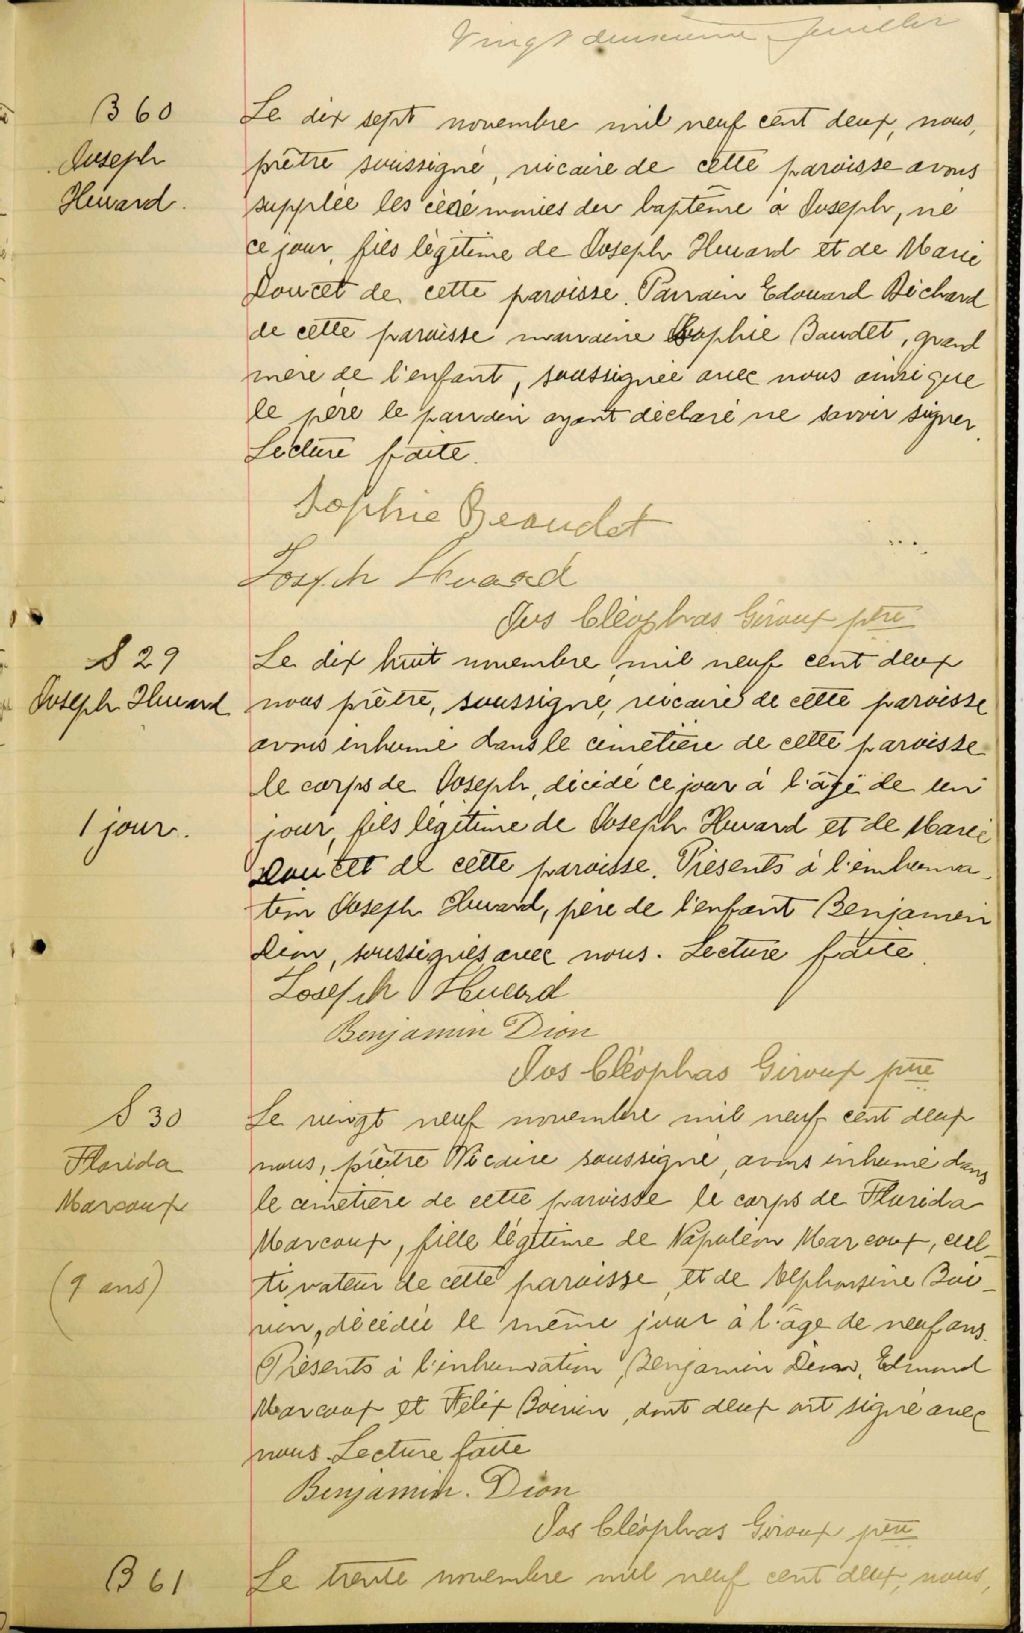 Vingt deuxième feuillet
B 60
Joseph
Huard.
Le dix sept novembre mil neuf cent deux, nous,
prêtre soussigné, vicaire de cette paroisse avons
supplée les cérémonies du baptême à Joseph, né
ce jour, fils légitime de Joseph Huard et de Marie
Doucet de cette paroisse. Parrain Edouard Béchard
de cette paroisse marraine Sophie Baudet, grand
mère de l'enfant, soussignée avec nous ainsi que
le père le parrain ayant déclaré ne savoir signer.
Lecture faite.
Sophie Beaudet
Joseph Huard
Jos Cléophas Giroux ptre
S 29
Joseph Huard
1 jour.
Le dix huit novembre, mil neuf cent deux
nous prêtre, soussigné, vicaire de cette paroisse
avons inhumé dans le cimetière de cette paroisse
le corps de Joseph, décédé ce jour à l'âge de un
jour, fils légitime de Joseph Huard et de Marie
Doucet de cette paroisse. Présents à l'inhuma-
tion Joseph Huard, père de l'enfant Benjamin
Dion, soussignés avec nous. Lecture faite.
Joseph Huard
Benjamin Dion
Jos Cléophas Giroux ptre
S 30
Florida
Marcoux
(9 ans)
Le vingt neuf novembre mil neuf cent deux
nous, prêtre Vicaire soussigné, avons inhumé dans
le cimetière de cette paroisse le corps de Florida
Marcoux, fille légitime de Napoléon Marcoux, cul-
tivateur de cette paroisse, et de Alphonsine Boi-
vin, décédée le même jour à l'âge de neuf ans.
Présents à l'inhumation, Benjamin Dion, Edmond
Marcoux et Félix Boivin, dont deux ont signé avec
nous. Lecture faite
Benjamin. Dion
Jos Cléophas Giroux ptre
B 61
Le trente novembre mil neuf cent deux, nous,